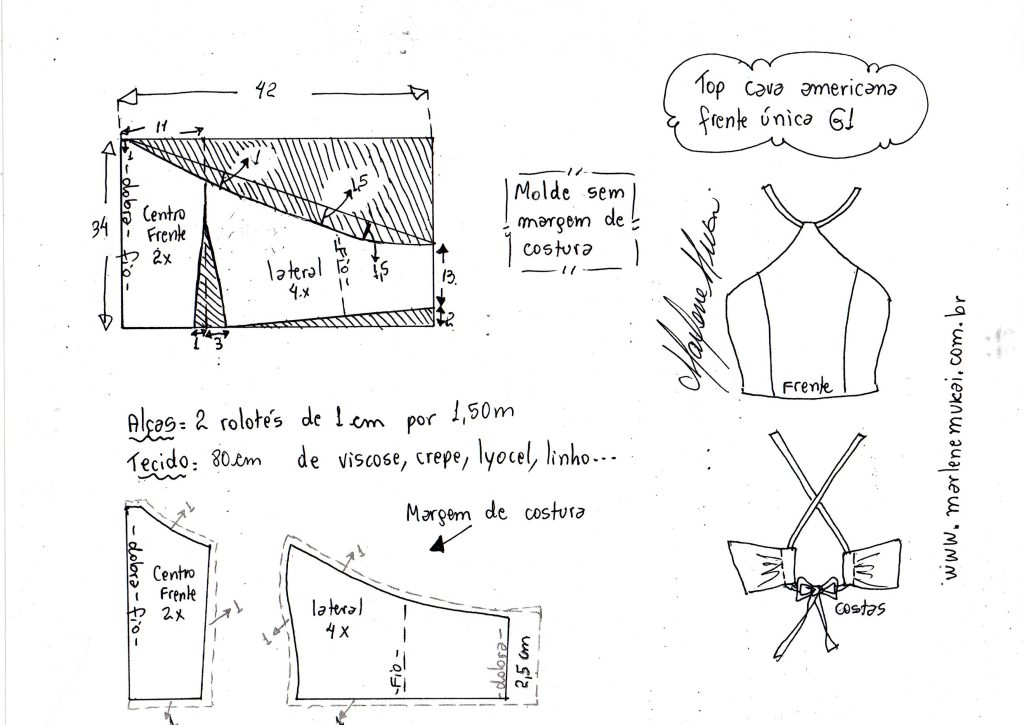 42
11
1
1
1,5
1,5
34
- dobra - fio -
Centro
Frente
2x
lateral
4x
- Fio -
13
2
1
3
Top cava americana
frente única G1
Molde sem
margem de
costura
Marlene Mukai
Frente
www.marlenemukai.com.br
Alças: 2 rolotés de 1 cm por 1,50m
Tecido: 80cm de viscose, crepe, lyocel, linho...
Margem de costura
1
- dobra - fio -
Centro
Frente
2x
1
1
1
1
lateral
4x
- Fio -
- dobra -
2,5 cm
1
costas